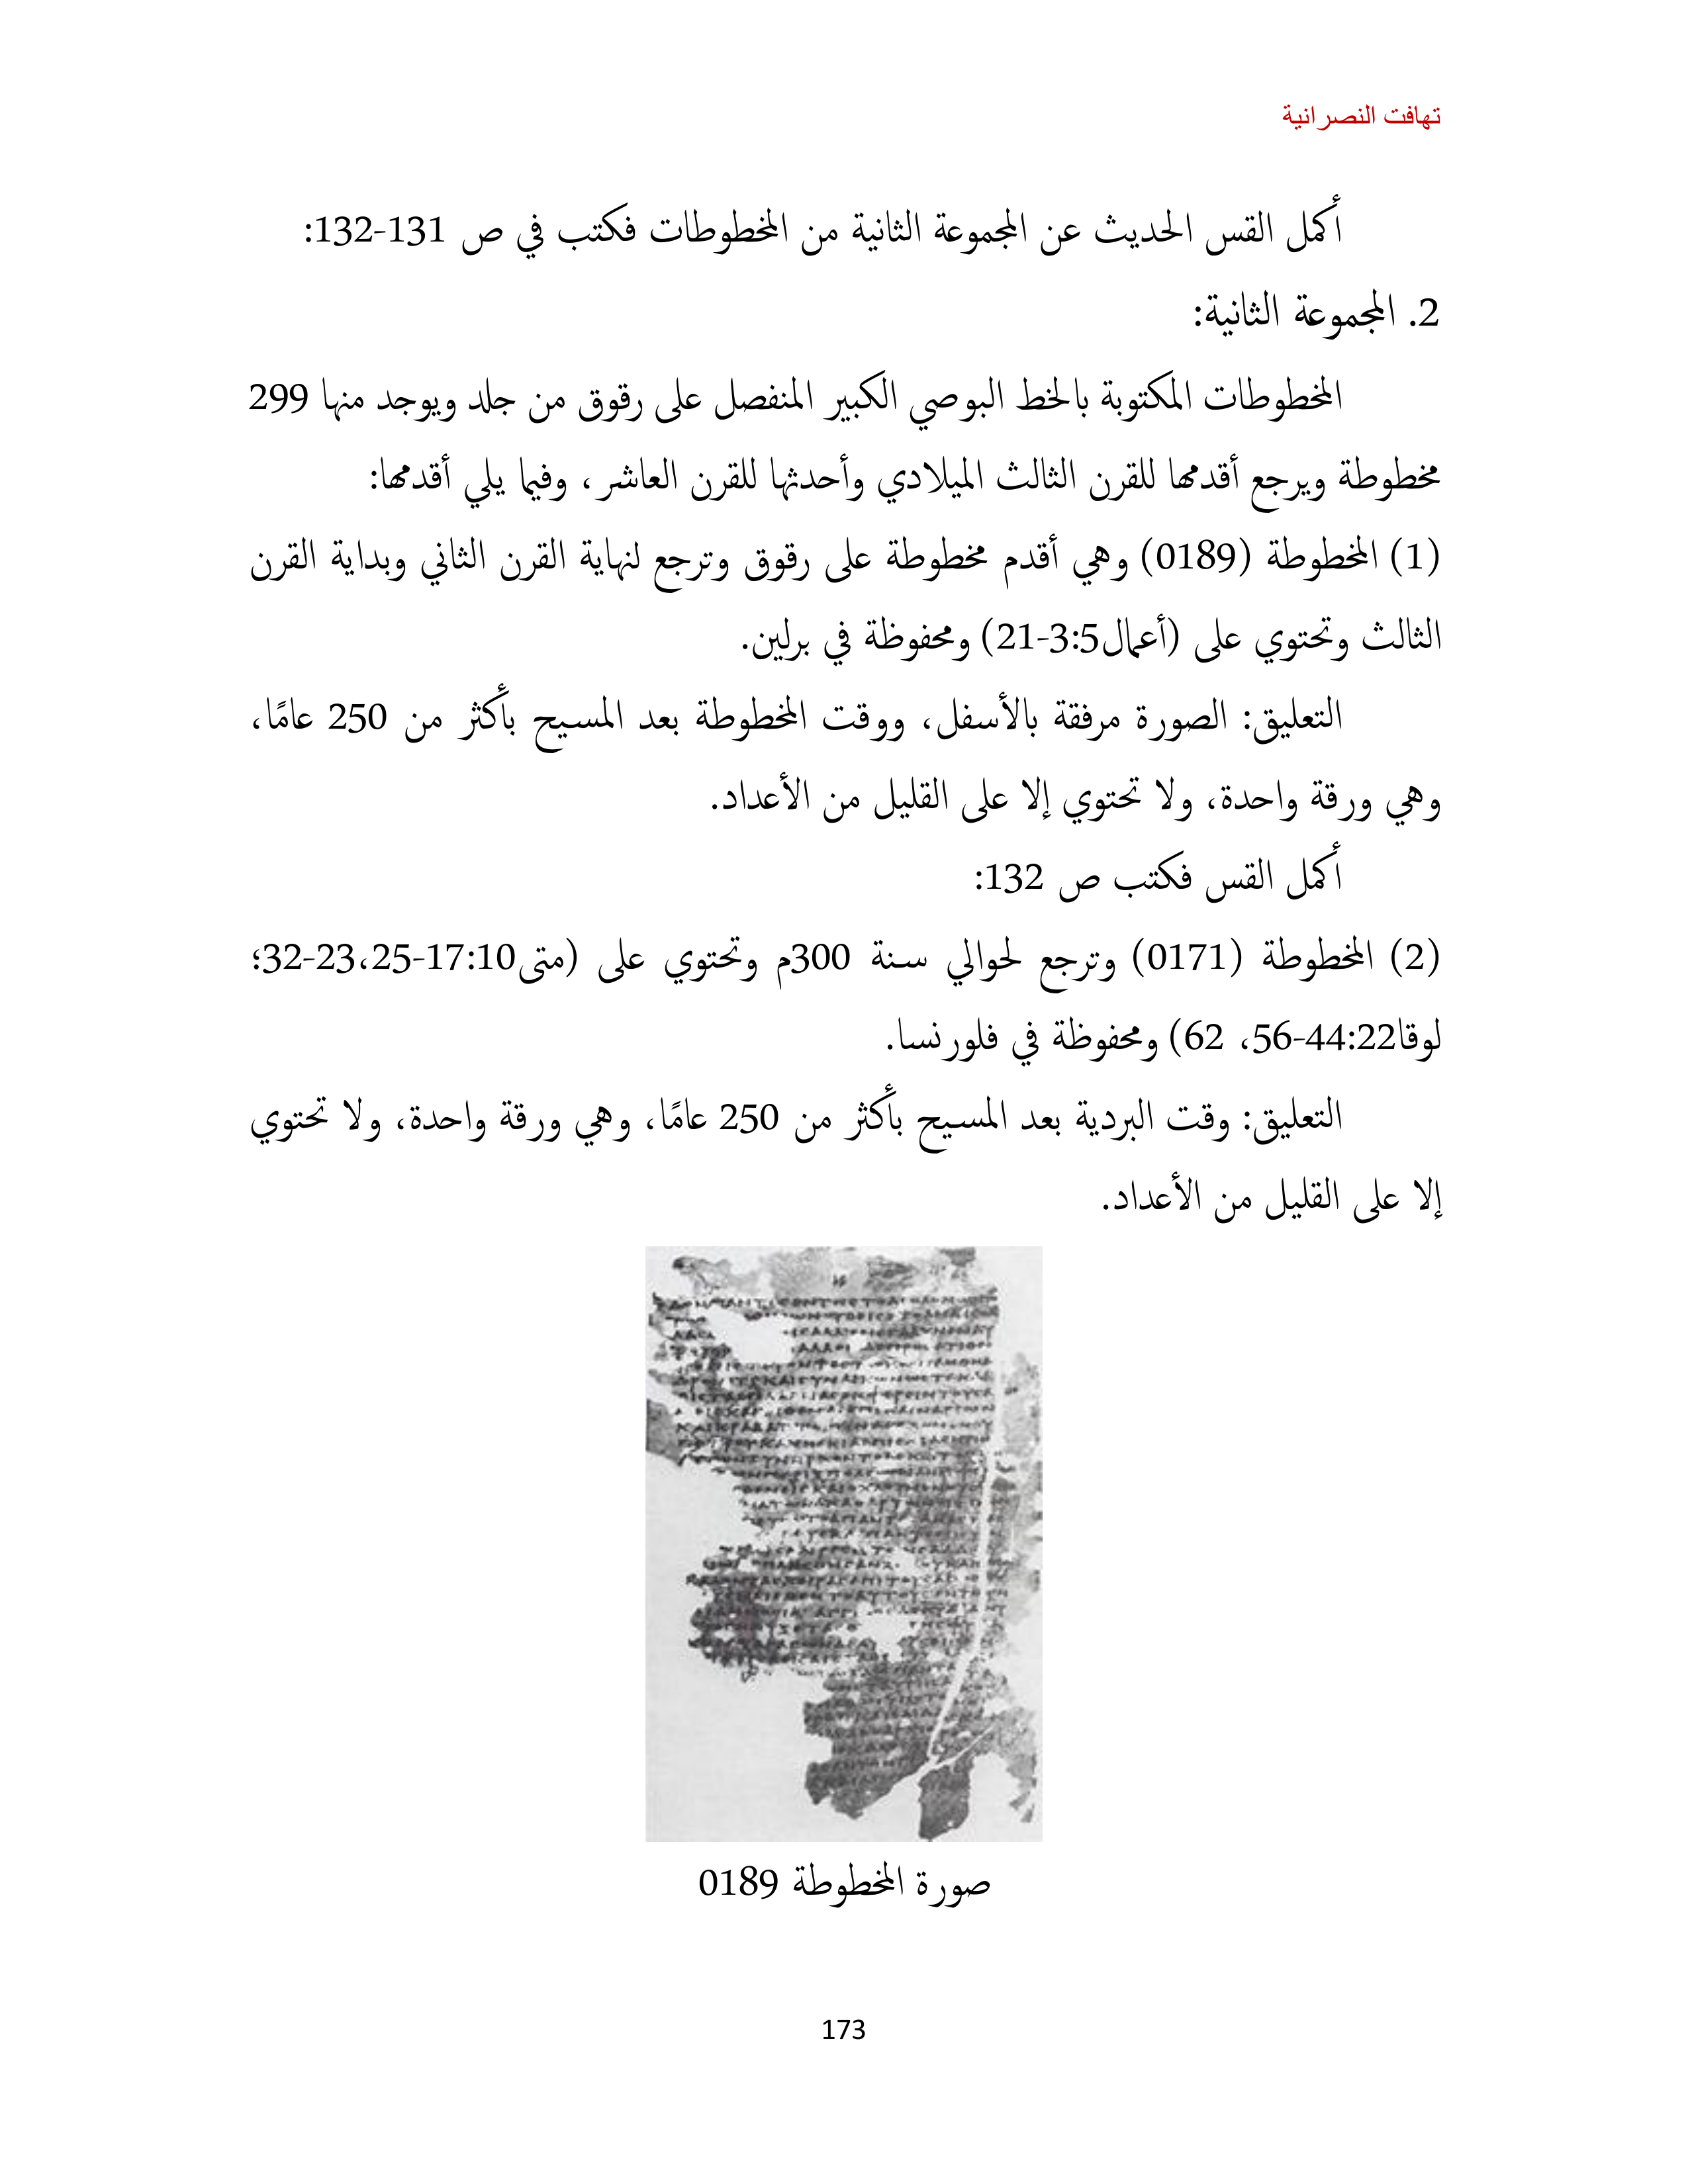 تهافت النصرانية
أكمل القس الحديث عن المجموعة الثانية من المخطوطات فكتب في ص 131-132:
2. المجموعة الثانية:
المخطوطات المكتوبة بالخط البوصي الكبير المنفصل على رقوق من جلد ويوجد منها 299
مخطوطة ويرجع أقدمها للقرن الثالث الميلادي وأحدثها للقرن العاشر، وفيما يلي أقدمها:
(1) المخطوطة (0189) وهي أقدم مخطوطة على رقوق وترجع لنهاية القرن الثاني وبداية القرن
الثالث وتحتوي على (أعمال3:5-21) ومحفوظة في برلين.
التعليق: الصورة مرفقة بالأسفل، ووقت المخطوطة بعد المسيح بأكثر من 250 عامًا،
وهي ورقة واحدة، ولا تحتوي إلا على القليل من الأعداد.
أكمل القس فكتب ص 132:
(2) المخطوطة (0171) وترجع لحوالي سنة 300م وتحتوي على (متى17:10-23،25-32؛
لوقا44:22-56، 62) ومحفوظة في فلورنسا.
التعليق: وقت البردية بعد المسيح بأكثر من 250 عامًا، وهي ورقة واحدة، ولا تحتوي
إلا على القليل من الأعداد.
صورة المخطوطة 0189
173